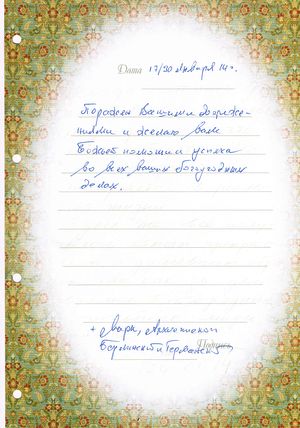 Дата 17/30 января 14 г.
Поражен Вашими достиже-
ниями и желаю вам
Божьей помощи и успеха
во всех ваших богоугодных
делах.
+ Марк, Архиепископ
Берлинский и Германский
Подпись